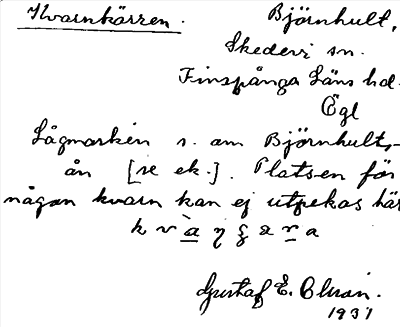 Kvarnkärren. Björnhult,
Skedevi sn.
Finspånga Läns hd.
Ögl
Lågmarken s. om Björnhults-
ån [se ek.]. Platsen för
någon kvarn kan ej utpekas här
Gustaf E.
1931